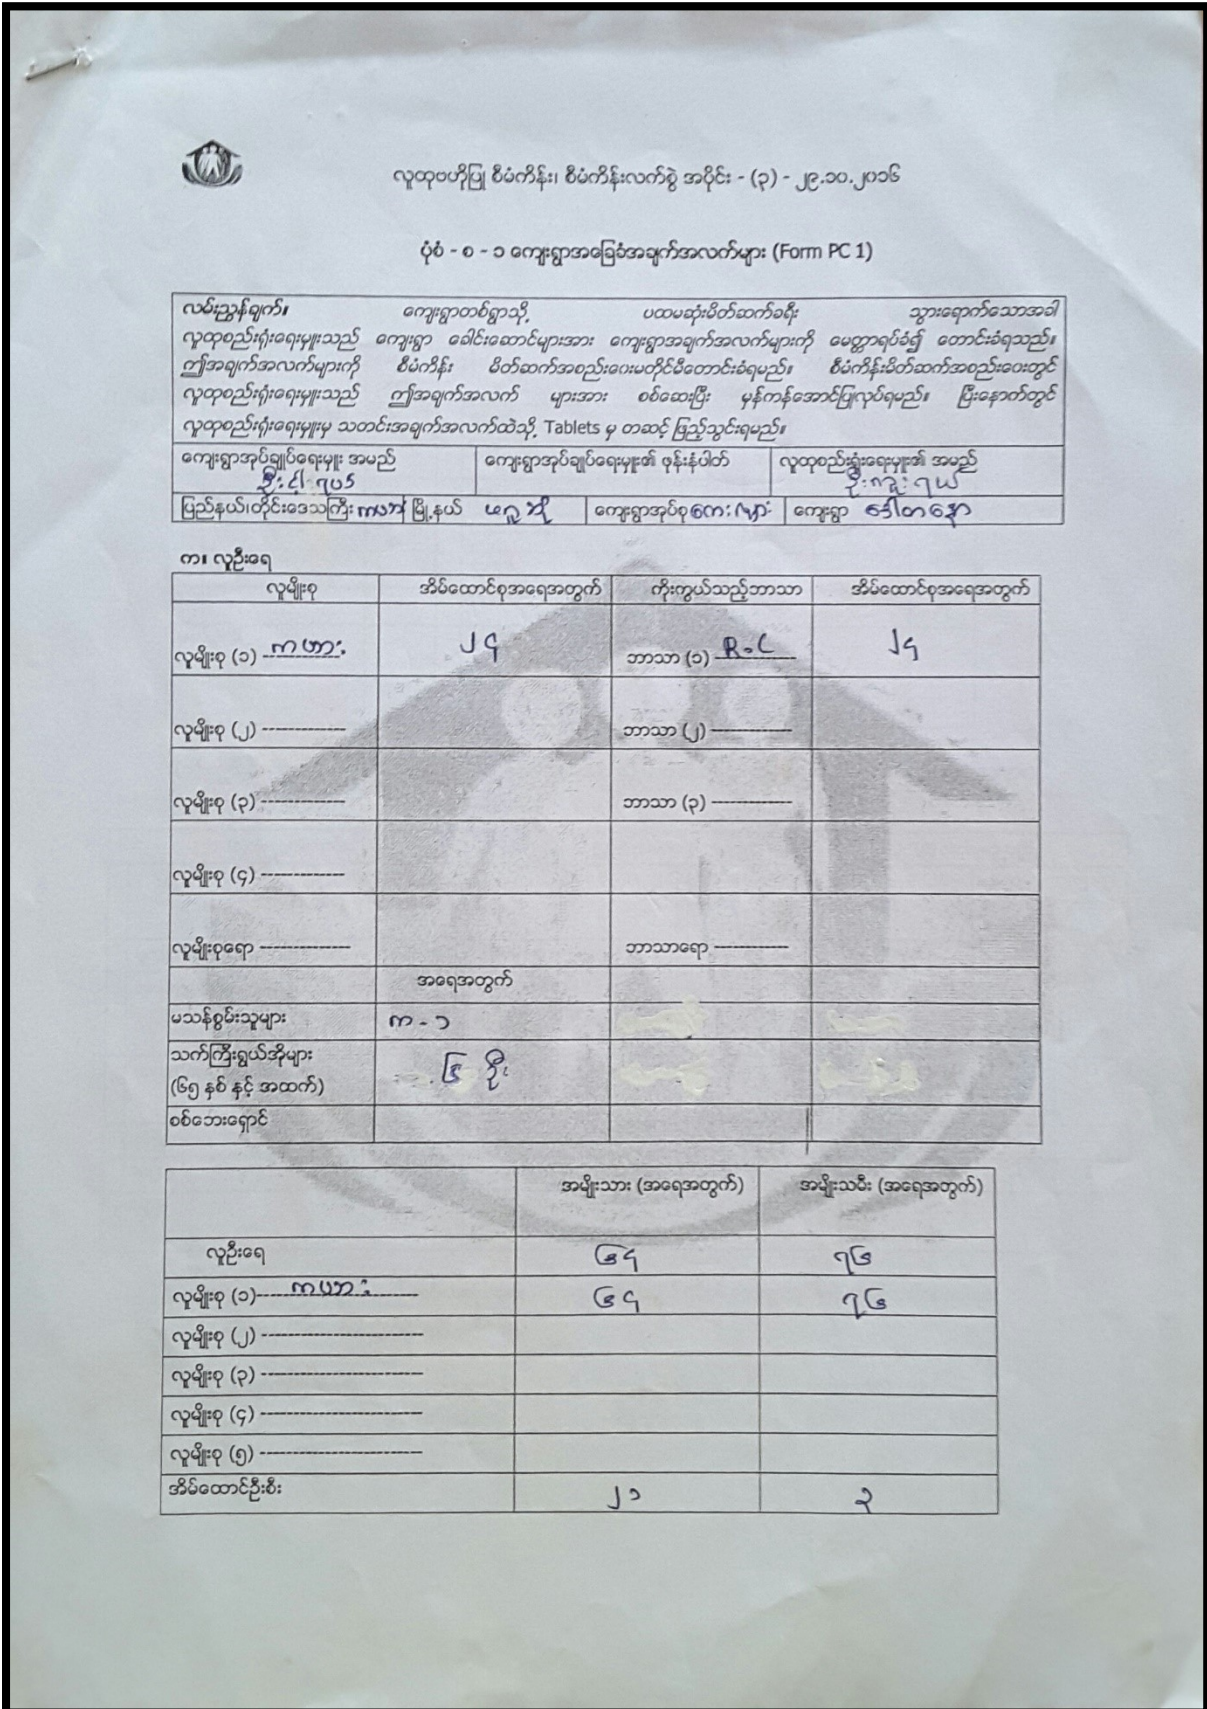 လူထုဗဟိုပြု စီမံကိန်း၊ စီမံကိန်းလက်စွဲ အပိုင်း - (၃) - ၂၉.၁၀.၂၀၁၆
ပုံစံ - စ - ၁ ကျေးရွာအခြေခံအချက်အလက်များ (Form PC 1)
လမ်းညွှန်ချက်။ ကျေးရွာတစ်ရွာသို့ ပထမဆုံးမိတ်ဆက်ခရီး သွားရောက်သောအခါ
လူထုစည်းရုံးရေးမှူးသည် ကျေးရွာ ခေါင်းဆောင်များအား ကျေးရွာအချက်အလက်များကို မေတ္တာရပ်ခံ၍ တောင်းခံရသည်။
ဤအချက်အလက်များကို စီမံကိန်း မိတ်ဆက်အစည်းဝေးမတိုင်မီတောင်းခံရမည်။ စီမံကိန်းမိတ်ဆက်အစည်းဝေးတွင်
လူထုစည်းရုံးရေးမှူးသည် ဤအချက်အလက် များအား စစ်ဆေးပြီး မှန်ကန်အောင်ပြုလုပ်ရမည်။ ပြီးနောက်တွင်
လူထုစည်းရုံးရေးမှူးမှ သတင်းအချက်အလက်ထဲသို့ Tablets မှ တဆင့် ဖြည့်သွင်းရမည်။
ကျေးရွာအုပ်ချုပ်ရေးမှူး အမည် ကျေးရွာအုပ်ချုပ်ရေးမှူး၏ ဖုန်းနံပါတ် လူထုစည်းရုံးရေးမှူး၏ အမည်
ပြည်နယ်၊တိုင်းဒေသကြီး ကယား မြို့နယ် ကျေးရွာအုပ်စု ကျေးရွာ
က။ လူဦးရေ
လူမျိုးစု အိမ်ထောင်စုအရေအတွက် ကိုးကွယ်သည့်ဘာသာ အိမ်ထောင်စုအရေအတွက်
လူမျိုးစု (၁) ကယား ၂၄ ဘာသာ (၁) R.C ၂၄
လူမျိုးစု (၂) ------------- ဘာသာ (၂) -------------
လူမျိုးစု (၃) ------------- ဘာသာ (၃) -------------
လူမျိုးစု (၄) -------------
လူမျိုးစုရော -------------- ဘာသာရော ------------
အရေအတွက်
မသန်စွမ်းသူများ က - ၁
သက်ကြီးရွယ်အိုများ ၆ ဦး
(၆၅ နှစ် နှင့် အထက်)
စစ်ဘေးရှောင်
အမျိုးသား (အရေအတွက်) အမျိုးသမီး (အရေအတွက်)
လူဦးရေ ၆၄ ၇၆
လူမျိုးစု (၁) ကယား ၆၄ ၇၆
လူမျိုးစု (၂) --------------------------
လူမျိုးစု (၃) --------------------------
လူမျိုးစု (၄) --------------------------
လူမျိုးစု (၅) --------------------------
အိမ်ထောင်ဦးစီး ၂၁ ၃